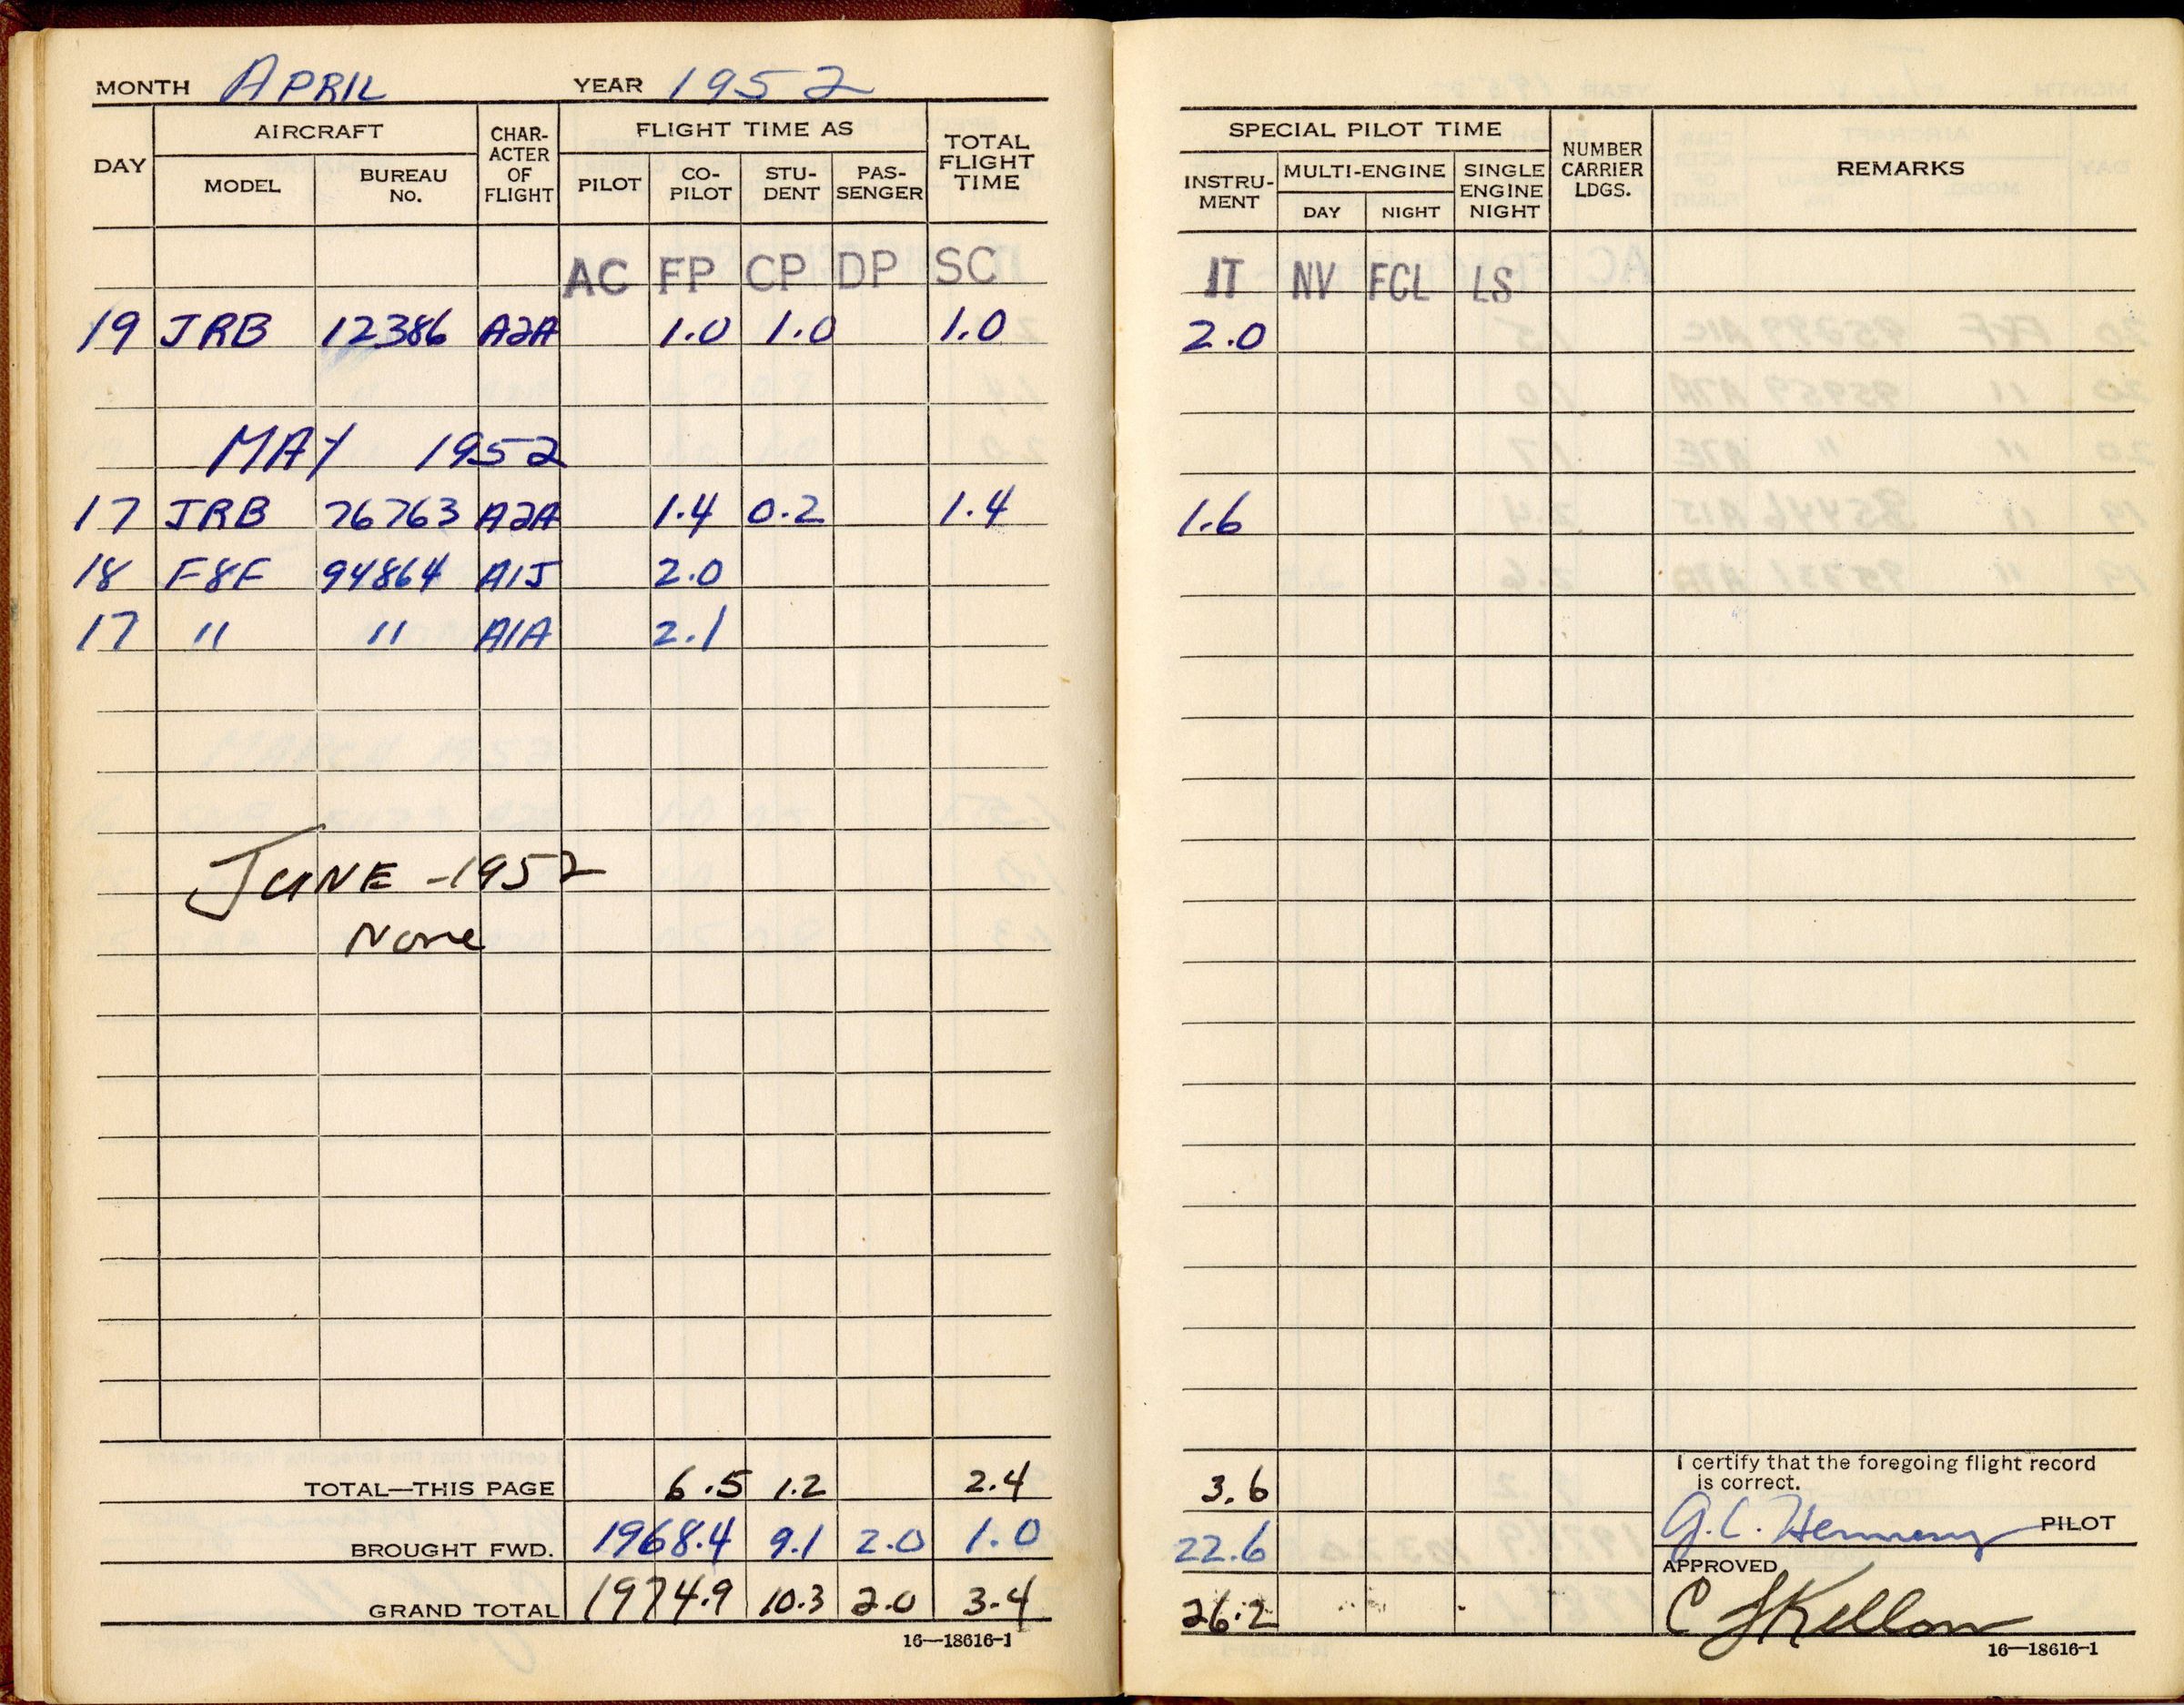 MONTH APRIL YEAR 1952
DAY AIRCRAFT CHAR-ACTER OF FLIGHT FLIGHT TIME AS TOTAL FLIGHT TIME
MODEL BUREAU No. PILOT CO-PILOT STU-DENT PAS-SENGER
AC FP CP DP SC
19 JRB 12386 A2A 1.0 1.0 1.0
MAY 1952
17 JRB 76763 A2A 1.4 0.2 1.4
18 F8F 94864 A1J 2.0
17 " " A1A 2.1
JUNE - 1952
None
TOTAL—THIS PAGE 6.5 1.2 2.4
BROUGHT FWD. 1968.4 9.1 2.0 1.0
GRAND TOTAL 1974.9 10.3 2.0 3.4
16—18616-1
SPECIAL PILOT TIME NUMBER CARRIER LDGS. REMARKS
INSTRU-MENT MULTI-ENGINE SINGLE ENGINE NIGHT
DAY NIGHT
IT NV FCL LS
2.0
1.6
I certify that the foregoing flight record
is correct.
3.6
G. C. Hennesy PILOT
22.6
APPROVED
26.2
C
16—18616-1